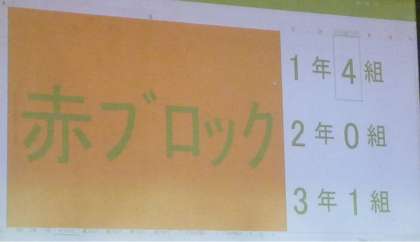 赤ブロック
1年4組
2年0組
3年1組